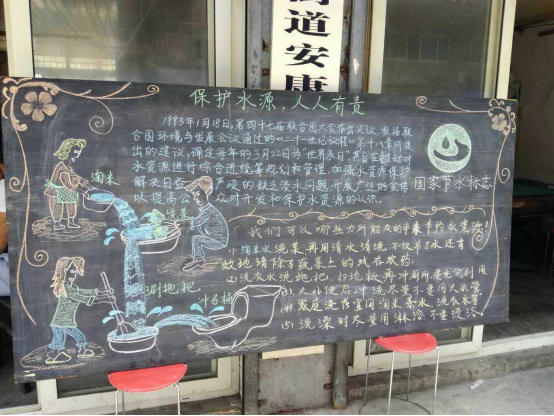 街道安康
保护水源，人人有责
1993年1月18日，第四十七届联合国大会作出决议，根据联
合国环境与发展会议通过的《二十一世纪议程》第十八章所提
出的建议，确定每年的3月22日为"世界水日"，其旨在推动对
水资源进行综合性统筹规划和管理，加强水资源保护，
解决日益严峻的缺乏淡水问题，开展广泛的宣传
以提高公众对开发和保护水资源的认识。
国家节水标志
淘米
洗菜
涮拖把
冲马桶
我们可以哪些力所能及的事来节约水资源
(1)淘米水洗菜，再用清水清洗，不仅节了水，还有
效地清除了蔬菜上的残存农药。
(2)洗衣水洗拖把、拖地板、再冲厕所
(3)大小便后冲洗尽量不要用大水管
(4)家庭洗
宜用淘米水、
(5)洗澡时尽量用淋浴不要